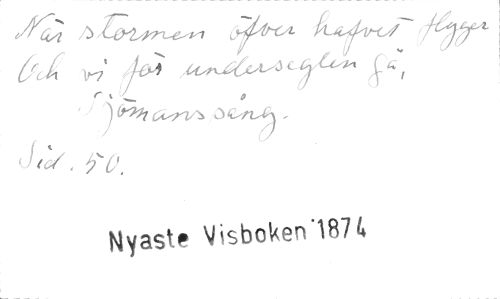 När stormen öfver hafvet flygger
Och vi för underseglen gå,
Sjömanssång.
Sid. 50.
Nyaste Visboken 1874